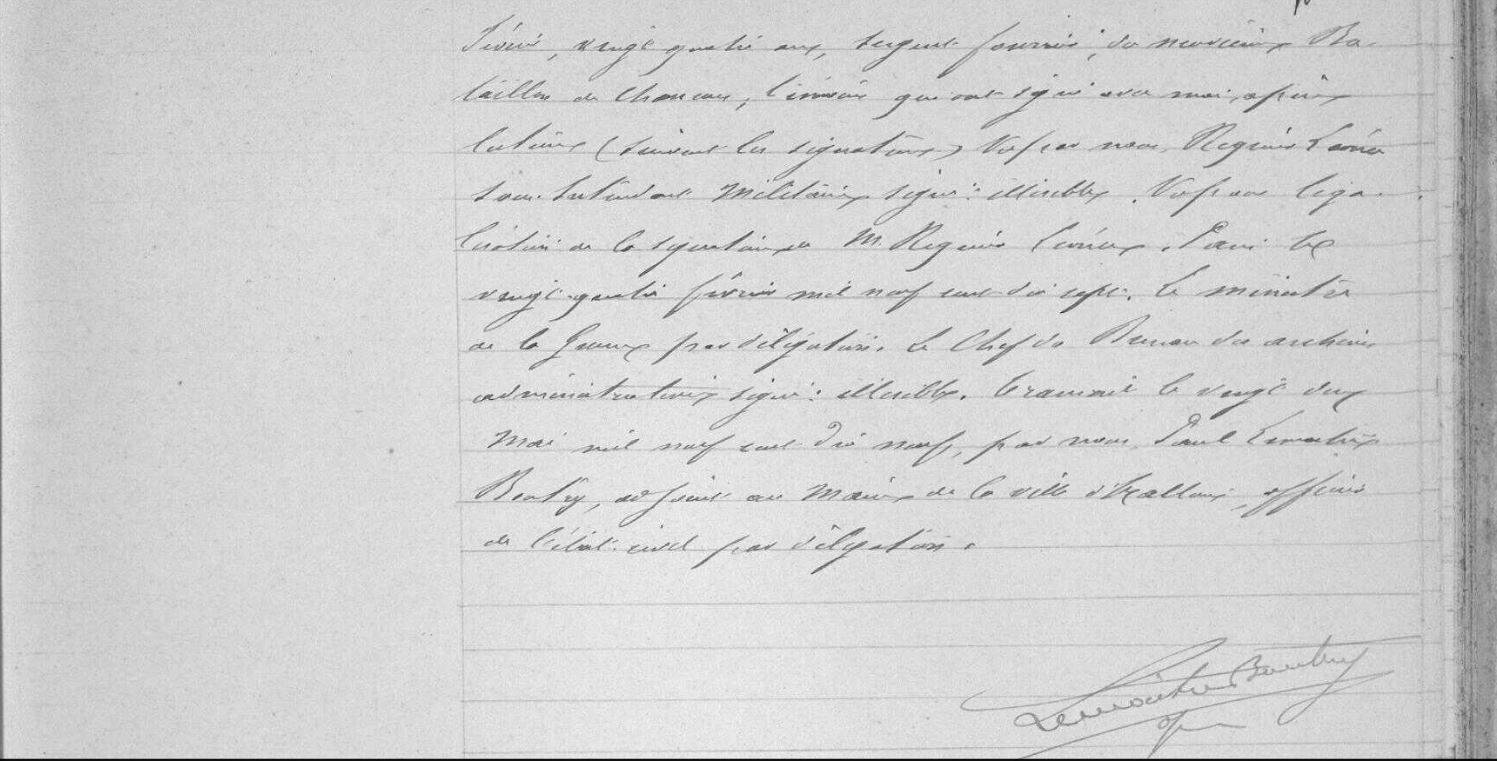 vingt quatre ans, sergent fourrier, du neuvième Ba-
taillon de Chasseurs, témoins qui ont signé avec moi après
lecture (suivent les signatures) Vu par nous, Regnier
sous-Intendant Militaire signé: illisible. Vu pour léga-
lisation de la signature de M. Regnier. Paris le
vingt-quatre février mil neuf cent dix sept. Le ministre
de la Guerre par délégation. Le Chef du Bureau des archives
administratives signé: illisible. Transcrit le vingt deux
Mai mil neuf cent dix neuf, par nous, Paul Lemaitre
adjoint au Maire de la ville officier
de l'état-civil par délégation.